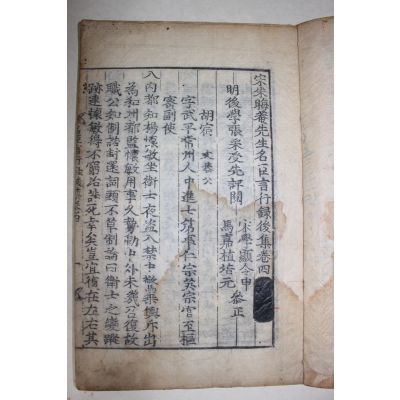 宋朱晦菴先生名臣言行録後集卷四
明後學張采受先評閱
宋學顯令申
馬嘉植培元
參正
胡宿 文恭公
字武平常州人中進士第事仁宗英宗官至樞
密副使
入内都知楊懷敏坐衛士夜盜入禁中驚乘輿斥出
為和州都監懷敏用事久勢動中外未幾召復故
職公知制誥封還詞頭不草制論曰衛士之變蹤
跡連懷敏得不窮治誅死幸矣豈宜復在左右其